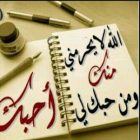 الله لا يحرمني
منك
ومن حبك لي
أحبك